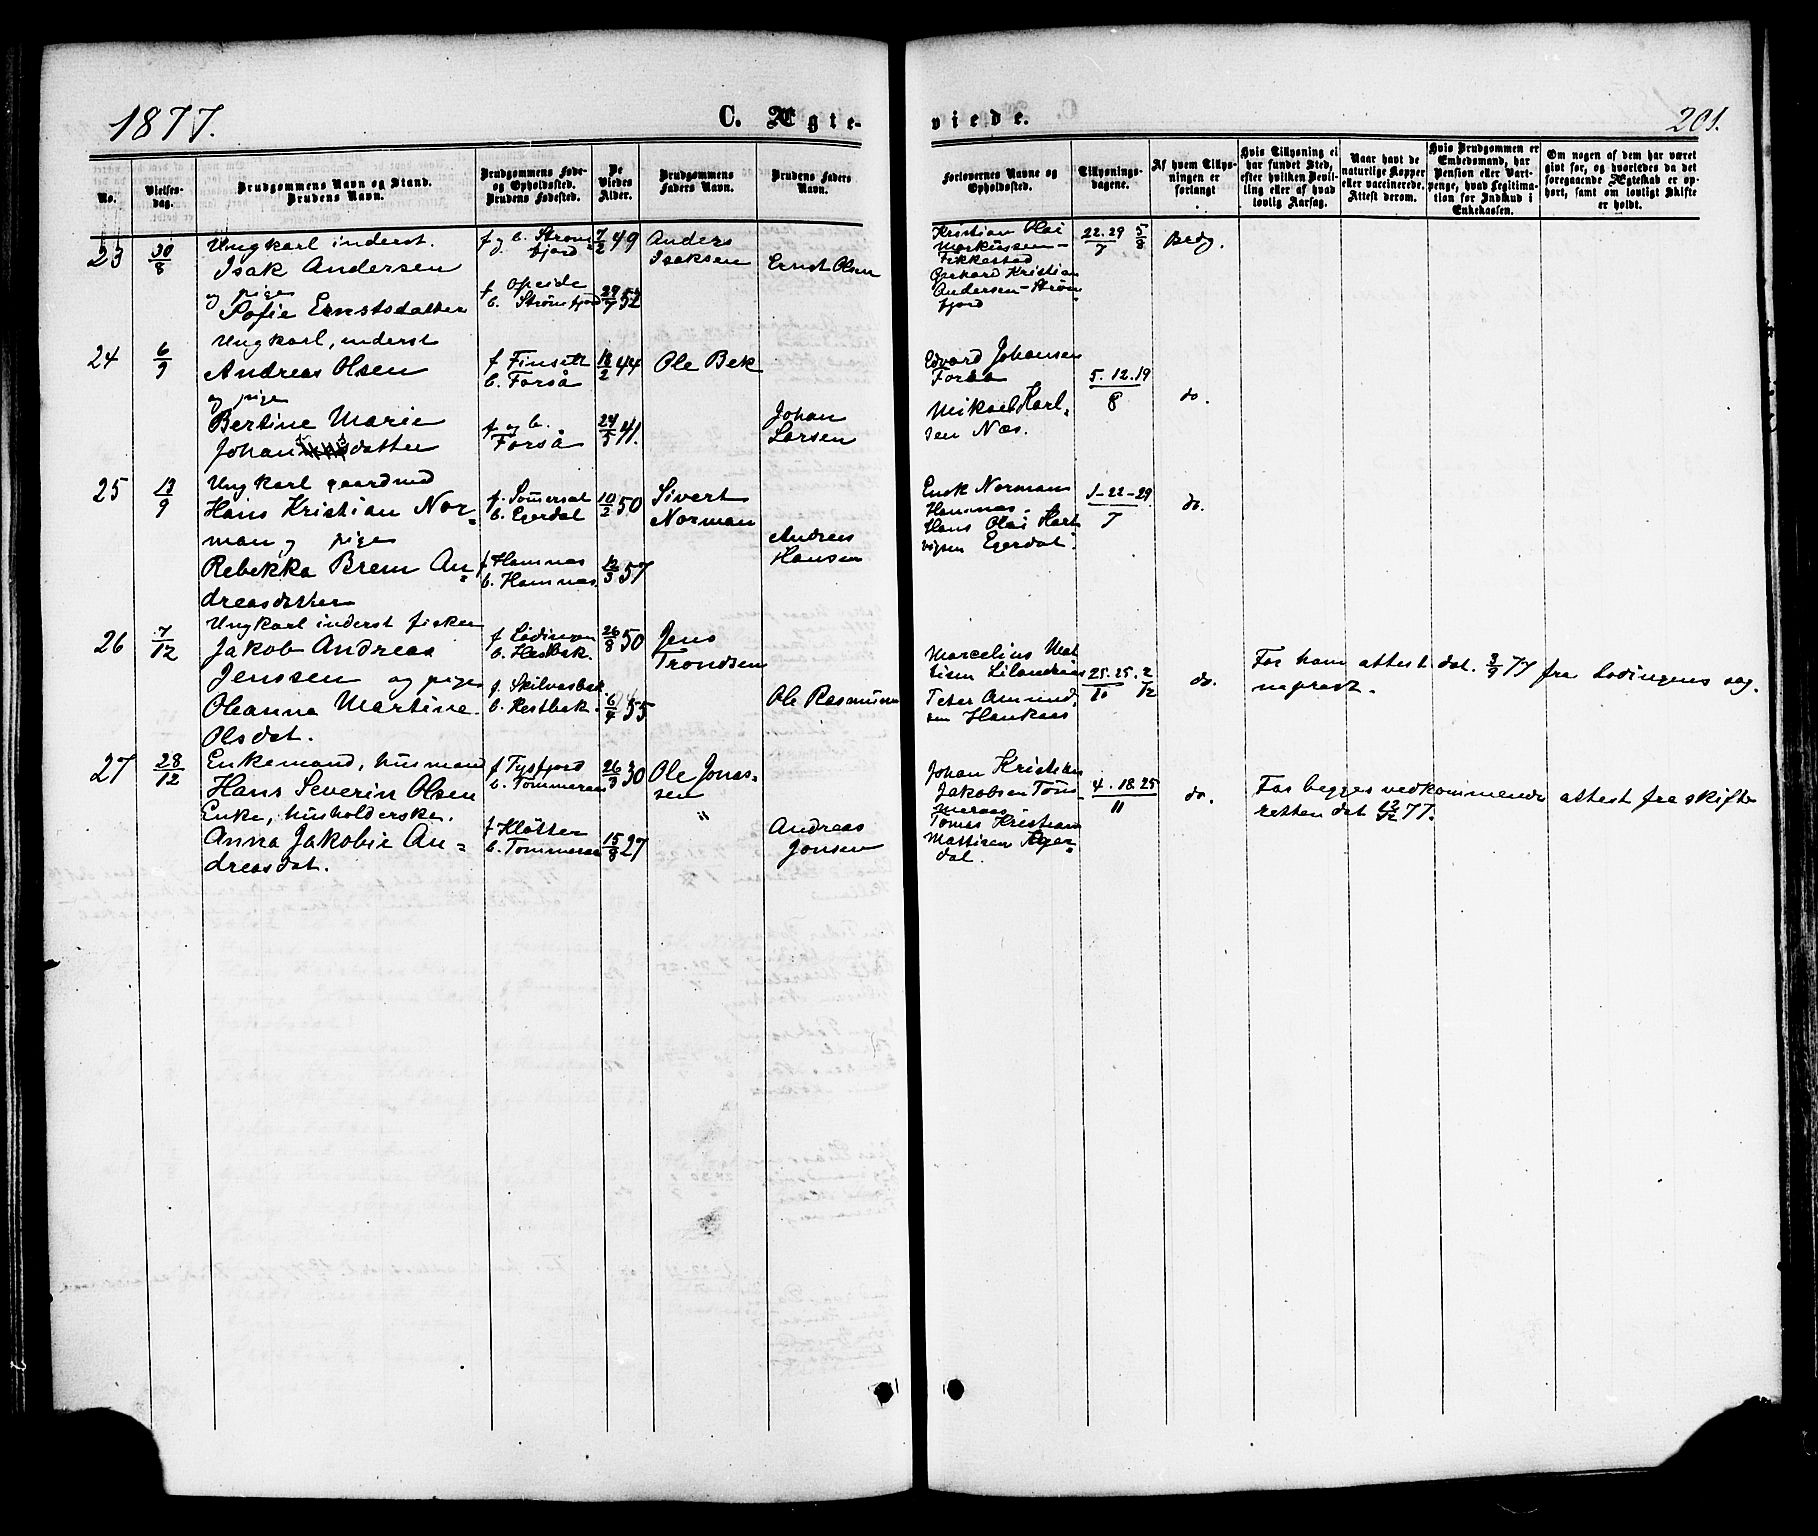 1877.
C. Ægteviede.
201.
No.
Vielsesdag.
Brudgommens Navn og Stand.
Brudens Navn.
Brudgommens Føde- og Opholdssted.
Brudens Fødested.
De Viedes Alder.
Brudgommens Faders Navn.
Brudens Faders Navn.
Forlovernes Navne og Opholdssted.
Tillysningsdagene.
Af hvem Tillysningen er forlangt
Hvis Tillysning ei har fundet Sted, efter hvilken Bevilling eller af hvad lovlig Aarsag.
Naar havt de naturlige Kopper eller vaccinerede. Attest derom.
Hvis Brudgommen er Embedsmand, har Pension eller Vartpenge, hvad Legitimation for Indskud i Enkekassen.
Om nogen af dem har været gift før, og hvorledes da det foregaaende Ægteskab er ophørt, samt om lovligt Skifte er holdt.
23 30/8
Ungkarl inderst.
Isak Andersen
og pige
Sofie Ernstsdatter
f og b. Strømfjord
f Opeide
b. Strømfjord
7/2 49
29/7 52
Anders Isaksen
Ernst Olsen
Kristian Olai
Markussen-
Fikkestad
Gerhard Kristian
Andersen-Strømfjord
22.29/7 5/8
Brdg.
24 6/9
Ungkarl, inderst
Andreas Olsen
og pige
Bertine Marie
Johansdatter
f Finsæt
b. Forså
f og b.
Forså
18/2 44
24/5 41.
Ole Bek
Johan
Larsen
Edvard Johansen
Forså
Mikael Karlsen Næs.
5.12.19/8
do.
25 13/9
Ungkarl gaardmd
Hans Kristian Norman og pige
Rebekka Brem Andreasdatter
f. Sommersæt
b. Egerdal
f Hamnæs
b. Hamnæs.
10/2 50
12/3 57
Sivert
Norman
Andreas
Hansen
Enok Norman
Hamnæs.
Hans Olai Hartvigsen Egerdal.
1-22-29/7
do.
26 7/12
Ungkarl inderst fisker
Jakob Andreas
Jenssen og pige
Oleanna Martine
Olsdat.
f Lødingen
b. Hestbak.
f. Skilvasbak
b. Hestbak.
26/8 50
6/4 55
Jens
Trondsen
Ole Rasmussen
Marcelius Matisen Lilandsås
Peter Amundsen Haukaas
25.25./10 2/12
do.
For ham attest dat. 3/9 77 fra Lødingens sogneprest.
27 28/12
Enkemand, husmand
Hans Severin Olsen
Enke, husholderske.
Anna Jakobie Andreasdat.
f Tysfjord
b. Tømmeraas
f Kløtter
b. Tommeraas
26/3 30
15/8 27
Ole Jonassen
"
Andreas
Jonsen
Johan Kristian
Jakobsen Tømmeraas
Tomas Kristian
Mattisen Ager-
dal.
4.18.25/11
do.
For begges vedkommende attest fra skifteretten dat 13/12 77.